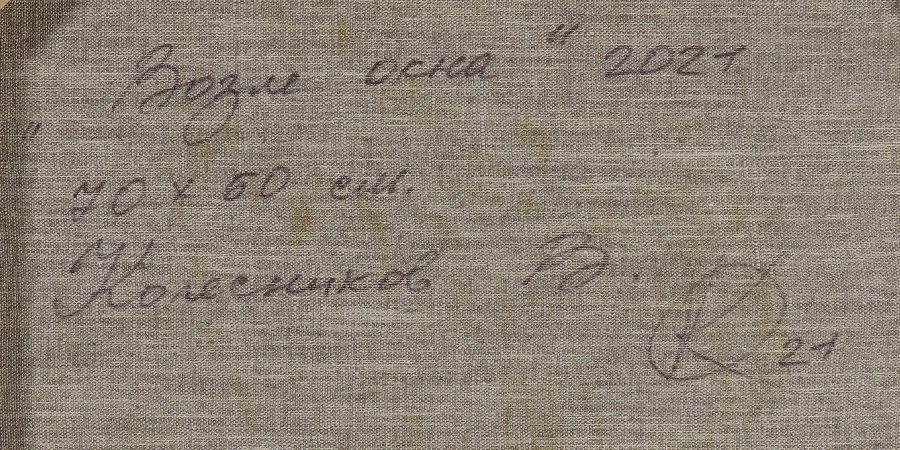 "Возле окна" 2021
70 х 50 см.
Колесников В.
21